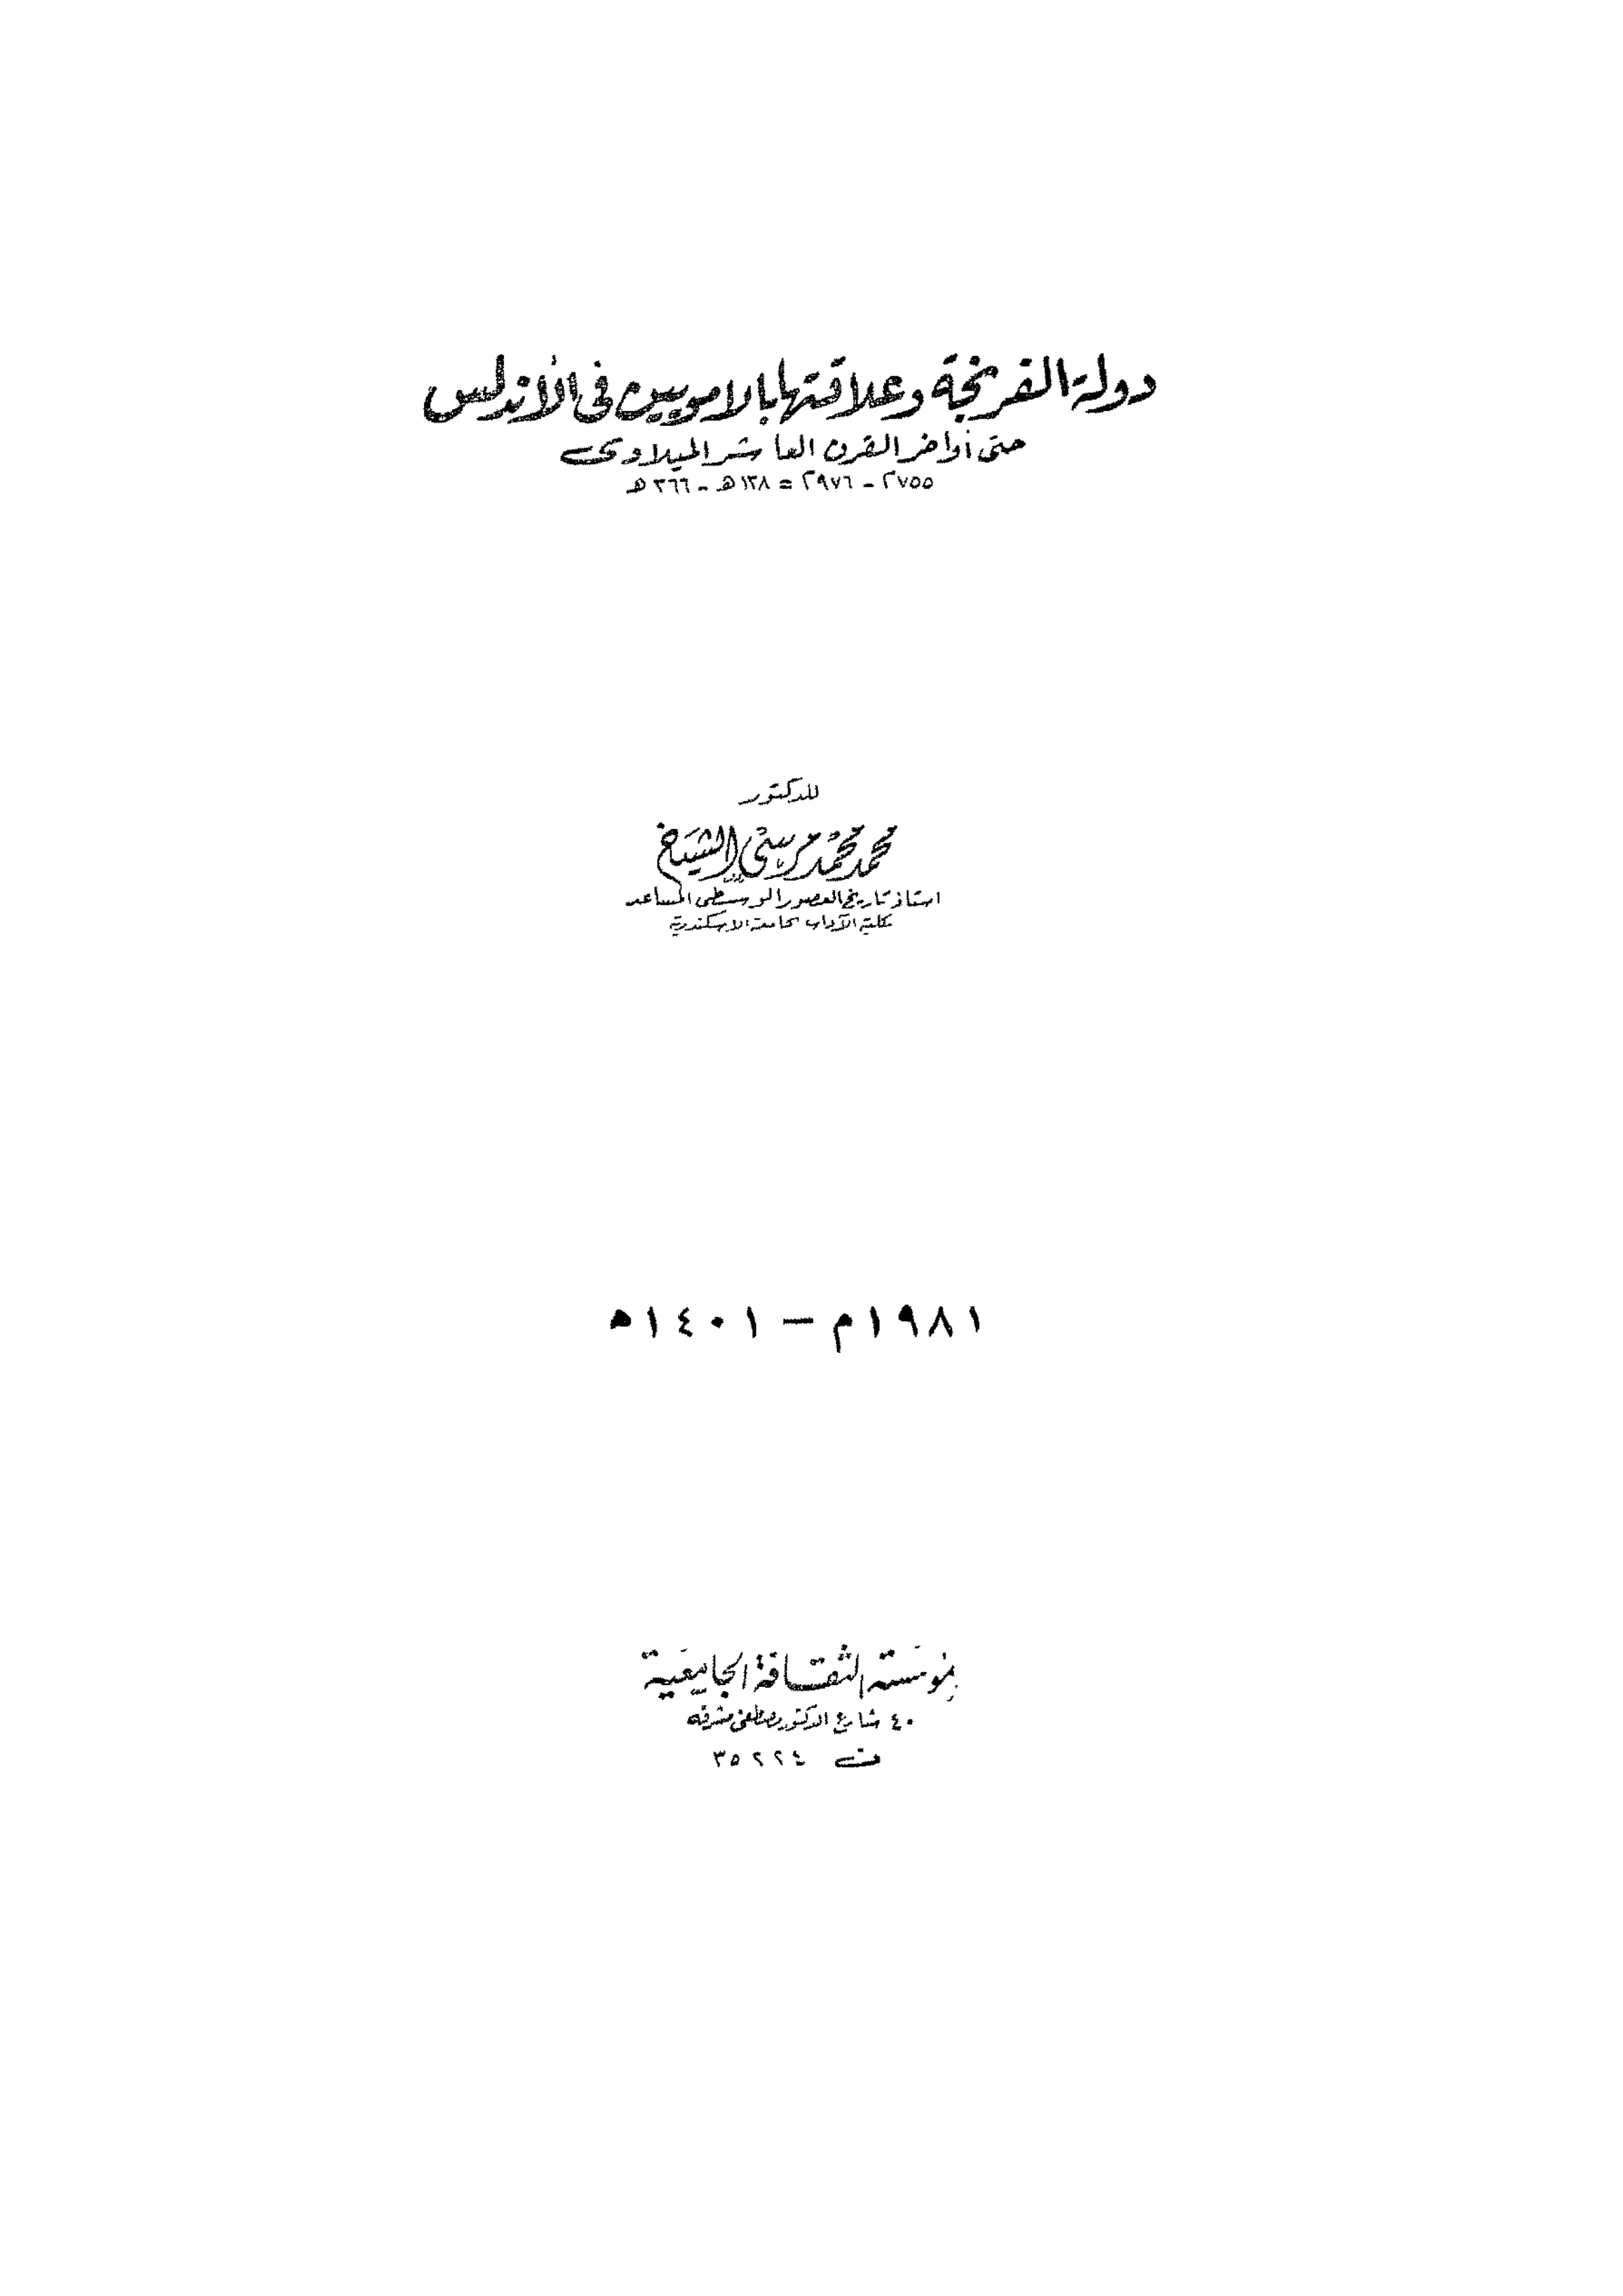 دولة الفرنجة وعلاقتها بالامويين فى الأندلس
حتى أواخر القرن العاشر الميلادى
٧٥٥م - ٩٧٦م = ١٣٨هـ - ٣٦٦هـ
للدكتور
محمد محمد مرسى الشيخ
استاذ تاريخ العصور الوسطى المساعد
بكلية الآداب بجامعة الاسكندرية
١٩٨١م – ١٤٠١ه
مؤسسة الثقافة الجامعية
٤٠ شارع الدكتور مصطفى مشرفه
ت ٣٥٢٢٤